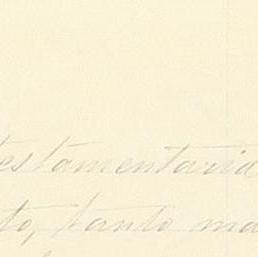 testamentaria
to, tanto ma